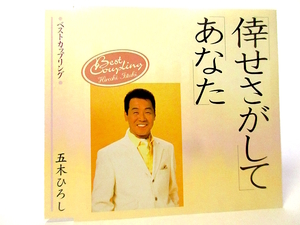 「倖せさがして」
「あなた」
Best
Coupling
Hiroshi Itsuki
*ベストカップリング*
五木ひろし